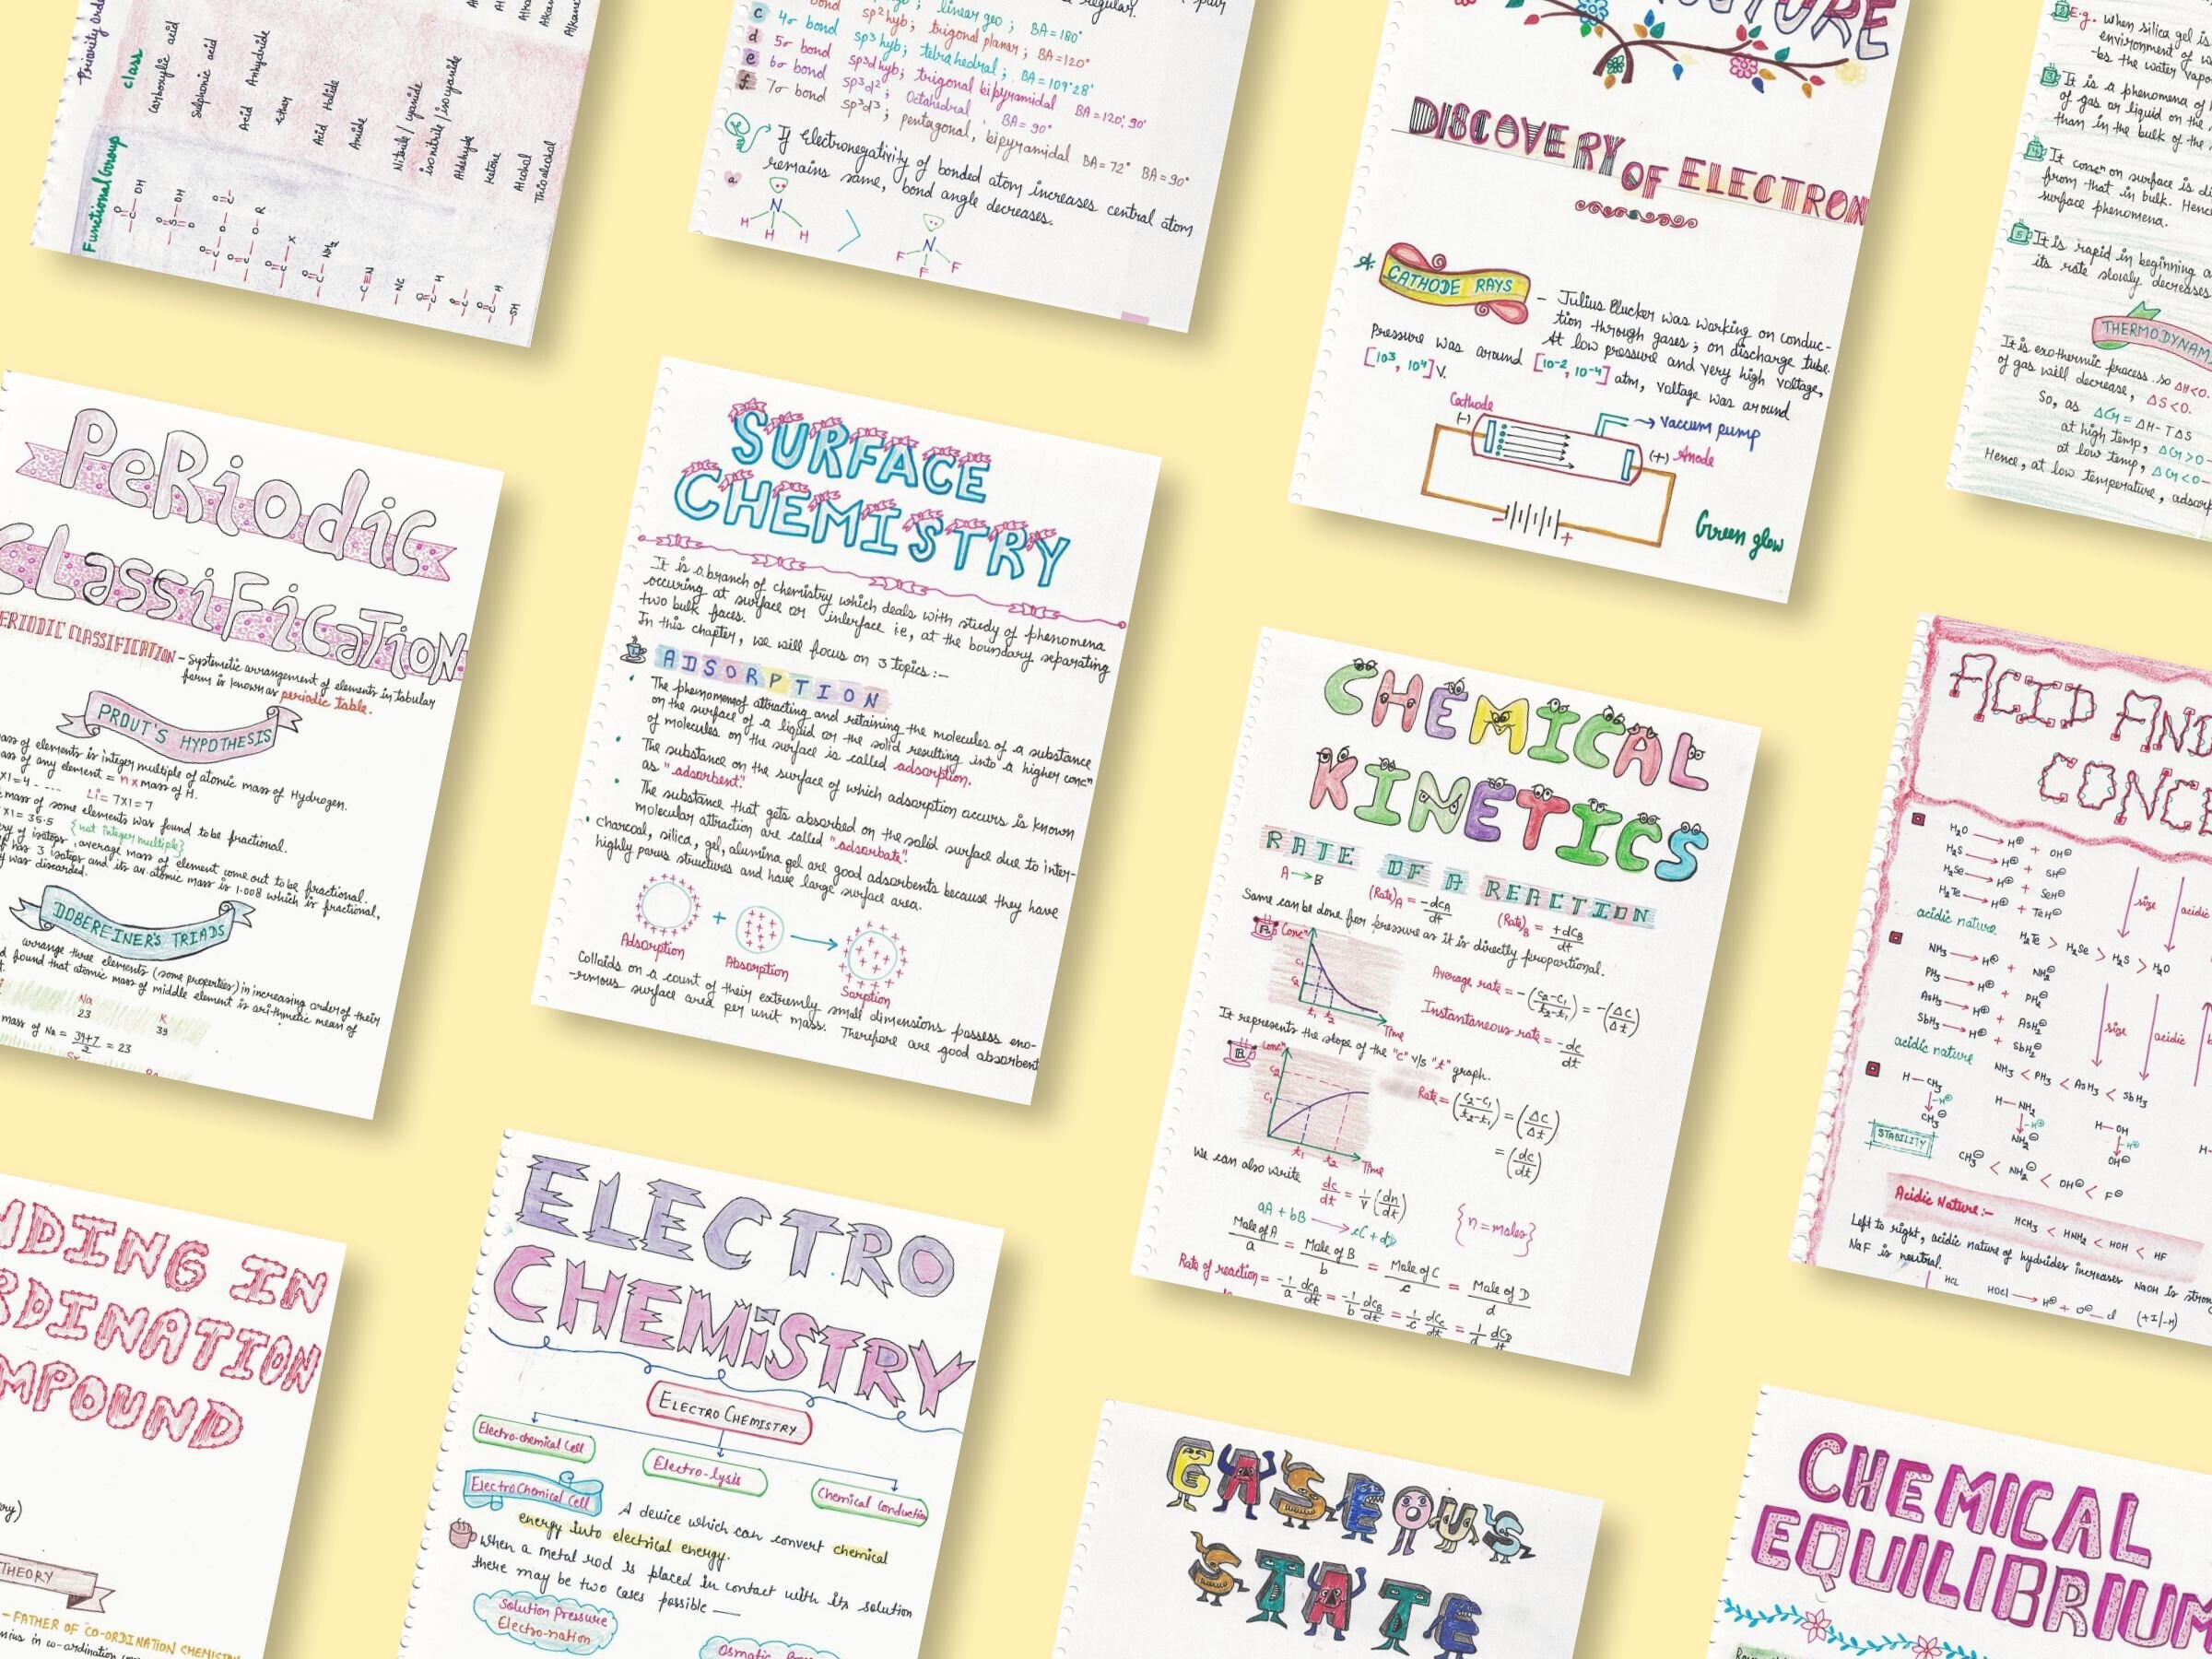 Priority Order
class
Carboxylic acid
Sulphonic acid
Acid Anhydride
Ether
Acid Halide
Amide
Nitrile/cyanide
isonitrile/isocyanide
Aldehyde
Ketone
Alcohol
Thioalcohol
Functional Group
regular.
linear geo; BA=180°
c 4σ bond sp2 hyb; trigonal planar; BA=120°
d 5σ bond sp3 hyb; tetrahedral; BA=109°28'
e 6σ bond sp3d hyb; trigonal bipyramidal BA=120°, 90°
f 7σ bond sp3d2; Octahedral BA=90°
sp3d3; pentagonal, bipyramidal BA=72° BA=90°
If Electronegativity of bonded atom increases central atom
remains same, bond angle decreases.
a
N
H H H
N
F F F
DISCOVERY OF ELECTRON
CATHODE RAYS
- Julius Plucker was working on conduc-
tion through gases; on discharge tube.
At low pressure and very high voltage,
Pressure was around [10-2, 10-4] atm, voltage was around
[10³, 10⁴]V.
Cathode
(-)
→ vaccum pump
(+) Anode
- +
Green glow
E.g. when silica gel is
environment of
-bs the water vapo
It is a phenomena of
of gas or liquid on the
than in the bulk of the
It concn on surface is di
from that in bulk. Henc
surface phenomena.
It is rapid in beginning a
its rate slowly decreases
THERMODYNAM
It is exothermic process. so ΔH<0.
of gas will decrease, ΔS<0.
So, as ΔG = ΔH-TΔS
at high temp, ΔG>0-
at low temp, ΔG<0-
Hence, at low temperature, adsorp
PeRiodic
CLassiFicaTioN
PERIODIC CLASSIFICATION - Systemetic arrangement of elements in tabular
form is known as periodic table.
PROUT'S HYPOTHESIS
mass of elements is integer multiple of atomic mass of Hydrogen.
mass of any element = n x mass of H.
x1=4 - --- Li= 7x1=7
mass of some elements was found to be fractional.
x1= 35.5 {not integer multiple}
ery of isotops, average mass of element come out to be fractional.
has 3 isotops and its av. atomic mass is 1.008 which is fractional,
y was discarded.
DOBEREINER'S TRIADS
arrange three elements (some properties) in increasing order of their
d found that atomic mass of middle element is arithmetic mean of
Na K
23 39
mass of Na = 39+7/2 = 23
SURFACE
CHEMISTRY
It is a branch of chemistry which deals with study of phenomena
occuring at surface or interface ie, at the boundary separating
two bulk faces.
In this chapter, we will focus on 3 topics:-
ADSORPTION
• The phenomenon of attracting and retaining the molecules of a substance
on the surface of a liquid or the solid resulting into a higher concn
of molecules on the surface is called adsorption.
• The substance on the surface of which adsorption occurs is known
as "adsorbent".
• The substance that gets absorbed on the solid surface due to inter-
molecular attraction are called "adsorbate".
• charcoal, silica, gel, alumina gel are good adsorbents because they have
highly porus structures and have large surface area.
Adsorption + Absorption → Sorption
Colloids on a count of their extremly small dimensions possess eno-
-rmous surface area per unit mass. Therefore are good absorbent
CHEMICAL
KINETICS
RATE OF A REACTION
A → B
(Rate)A = -dcA/dt (Rate)B = +dcB/dt
Same can be done for pressure as it is directly proportional.
A Concn
c1
c2
t1 t2 Time
Average rate = -(c2-c1/t2-t1) = -(Δc/Δt)
Instantaneous rate = -dc/dt
It represents the slope of the "c" v/s "t" graph.
B concn
c2
c1
t1 t2 Time
Rate = (c2-c1/t2-t1) = (Δc/Δt)
= (dc/dt)
we can also write
dc/dt = 1/v (dn/dt)
aA + bB → cC + dD {n=moles}
Mole of A/a = Mole of B/b = Mole of C/c = Mole of D/d
Rate of reaction = -1/a dcA/dt = -1/b dcB/dt = 1/c dcC/dt = 1/d dcD/dt
ACID AND
CONCE
H2O → H⊕ + OH⊖
H2S → H⊕ + SH⊖
H2Se → H⊕ + SeH⊖
H2Te → H⊕ + TeH⊖
size
acidic
acidic nature H2Te > H2Se > H2S > H2O
NH3 → H⊕ + NH2⊖
PH3 → H⊕ + PH2⊖
AsH3 → H⊕ + AsH2⊖
SbH3 → H⊕ + SbH2⊖
size
acidic
acidic nature NH3 < PH3 < AsH3 < SbH3
H-CH3 H-NH2 H-OH H-
-H⊕ -H⊕ -H⊕
CH3⊖ NH2⊖ OH⊖
STABILITY
CH3⊖ < NH2⊖ < OH⊖ < F⊖
Acidic Nature:- HCH3 < HNH2 < HOH < HF
Left to right, acidic nature of hydrides increases NaOH is stron
NaF is neutral.
HCL HOCl → H⊕ + O⊖-cl (+I/-M)
NDING IN
RDINATION
MPOUND
THEORY
- FATHER OF CO-ORDINATION CHEMISTR
ELECTRO
CHEMiSTRY
ELECTRO CHEMISTRY
Electro-chemical Cell
Electro-lysis
Chemical Conduction
ElectroChemical Cell
A device which can convert chemical
energy into electrical energy.
When a metal rod is placed in contact with its solution
there may be two cases possible —
Solution Pressure
Electro-nation
GASEOUS
STATE
CHEMICAL
EQUILIBRIUM